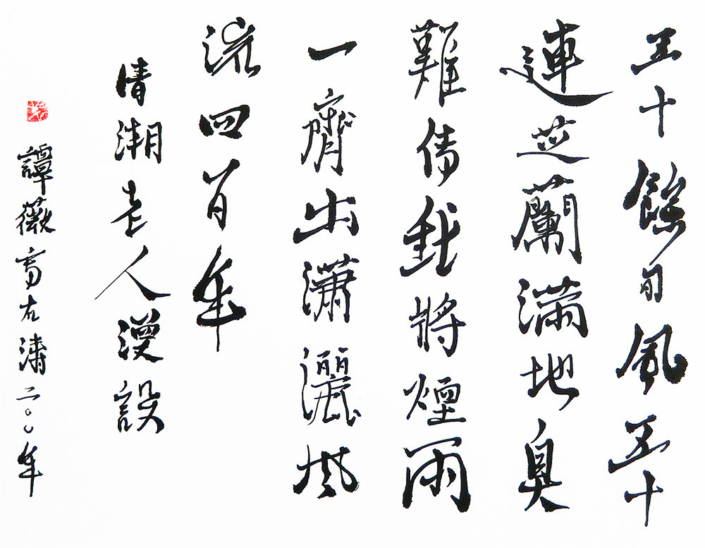 五十餘日風五十
連芝蘭滿地臭
難傳我將煙雨
一齊出瀟灑風
流四百年
清潮老人漫設
譚薇高左濤二〇〇年